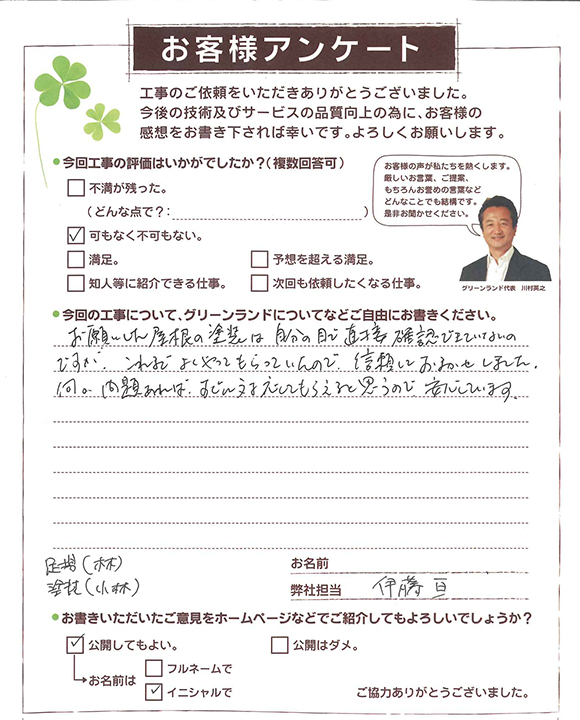 お客様アンケート
工事のご依頼をいただきありがとうございました。
今後の技術及びサービスの品質向上の為に、お客様の
感想をお書き下されば幸いです。よろしくお願いします。
●今回工事の評価はいかがでしたか?(複数回答可)
お客様の声が私たちを熱くします。
厳しいお言葉、ご提案、
もちろんお誉めの言葉など
どんなことでも結構です。
是非お聞かせください。
グリーンランド代表 川村英之
□不満が残った。
(どんな点で?: )
☑可もなく不可もない。
□満足。 □予想を超える満足。
□知人等に紹介できる仕事。 □次回も依頼したくなる仕事。
●今回の工事について、グリーンランドについてなどご自由にお書きください。
お願いした屋根の塗装は自分の目で直接確認できていないの
ですが、これまでよくやってもらっているので、信頼しておまかせしました。
何か問題あれば、すぐに対応してもらえると思うので安心しています。
足場(林)
塗装(小林)
お名前
弊社担当 伊藤亘
●お書きいただいたご意見をホームページなどでご紹介してもよろしいでしょうか?
☑公開してもよい。 □公開はダメ。
→お名前は □フルネームで
☑イニシャルで
ご協力ありがとうございました。